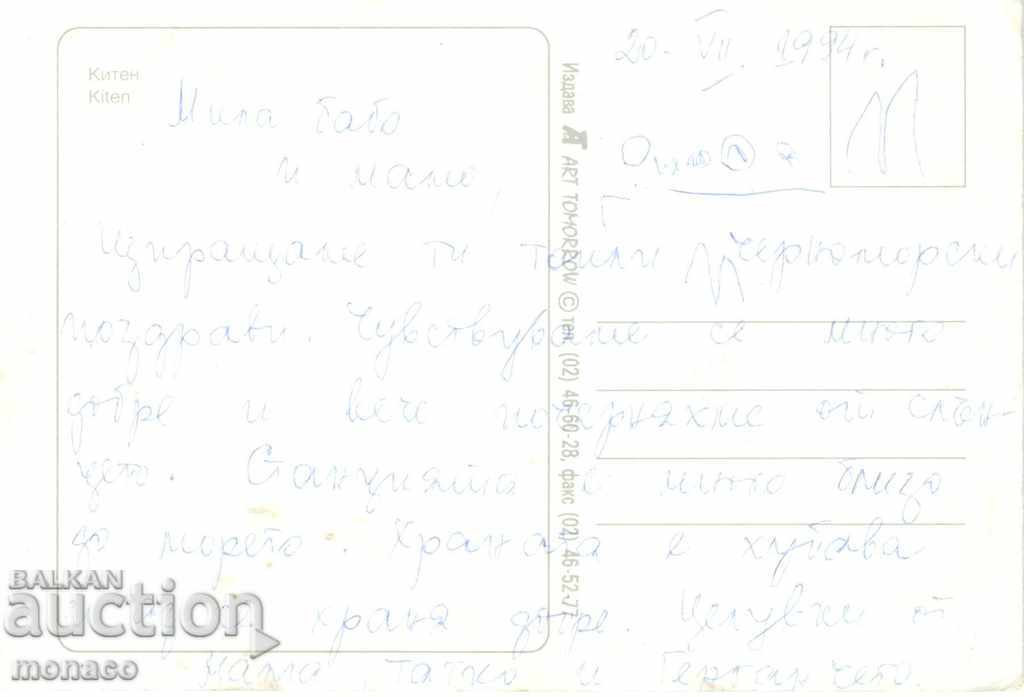 Китен
Kiten
20. VII. 1994 г.
Мила бабо
и мамо,
Изпращаме ти топли черноморски
поздрави. Чувствуваме се много
добре и вече почерняхме от слън-
цето. Станцията е много близо
до морето. Храната е хубава
храня добре. Целувки от
мама, татко и Герганчето.
Издава ART TOMORROW © тел. (02) 46-60-28, факс (02) 46-52-77
BALKAN
auction
monaco